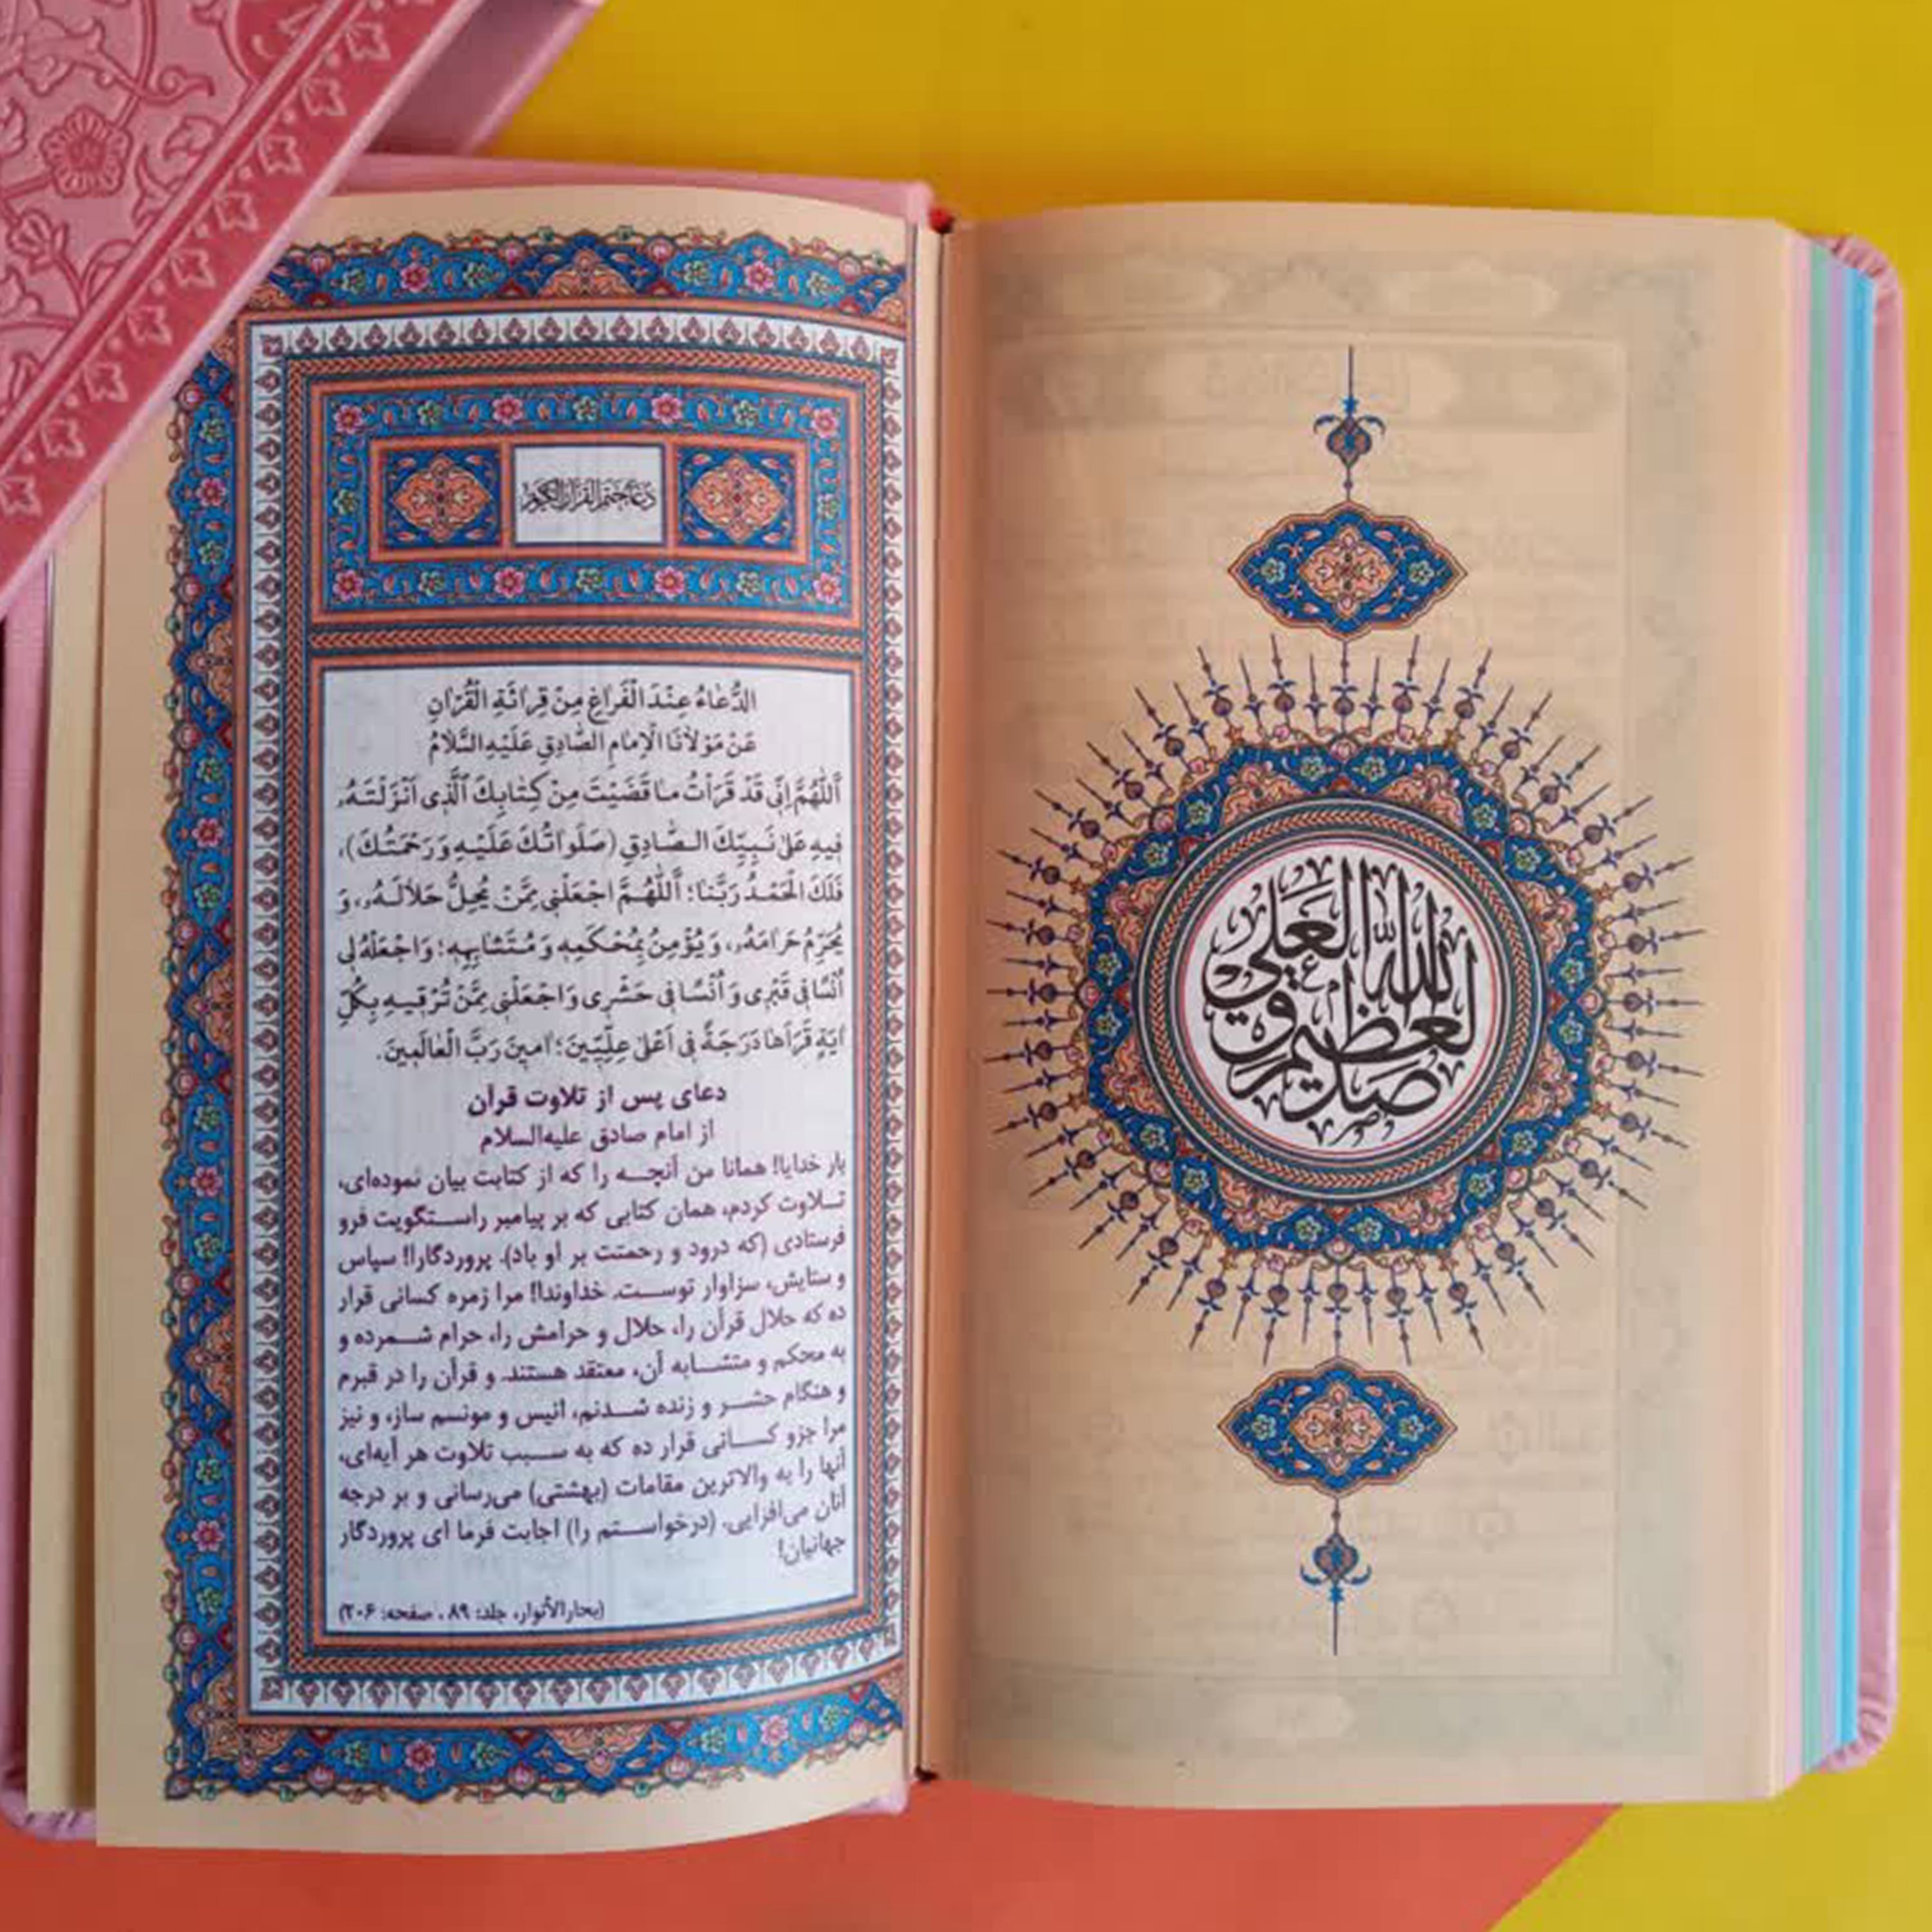 صدق الله العلي العظيم
دعاء ختم القرآن الكريم
اَلدُّعٰاءُ عِنْدَ الْفَرٰاغِ مِنْ قِرٰائَةِ الْقُرْاٰنِ
عَنْ مَوْلاٰنَا الْاِمٰامِ الصّٰادِقِ عَلَيْهِ السَّلاٰمُ
اَللّٰهُمَّ اِنّٖى قَدْ قَرَاْتُ مٰا قَضَيْتَ مِنْ كِتٰابِكَ الَّذٖى اَنْزَلْتَهُ،
فٖيهِ عَلىٰ نَبِيِّكَ الصّٰادِقِ (صَلَوٰاتُكَ عَلَيْهِ وَ رَحْمَتُكَ)،
فَلَكَ الْحَمْدُ رَبَّنٰا؛ اَللّٰهُمَّ اجْعَلْنٖى مِمَّنْ يُحِلُّ حَلاٰلَهُ، وَ
يُحَرِّمُ حَرٰامَهُ، وَ يُؤْمِنُ بِمُحْكَمِهٖ وَ مُتَشٰابِهِهٖ؛ وَ اجْعَلْهُ لٖى
اُنْسًا فٖى قَبْرٖى وَ اُنْسًا فٖى حَشْرٖى وَ اجْعَلْنٖى مِمَّنْ تُرْقٖيهِ بِكُلِّ
اٰيَةٍ قَرَاَهٰا دَرَجَةً فٖى اَعْلىٰ عِلِّيّٖينَ؛ اٰمٖينَ رَبَّ الْعٰالَمٖينَ.
دعای پس از تلاوت قرآن
از امام صادق علیه‌السلام
بار خدایا! همانا من آنچه را که از کتابت بیان نموده‌ای،
تلاوت کردم، همان کتابی که بر پیامبر راستگویت فرو
فرستادی (که درود و رحمتت بر او باد). پروردگارا! سپاس
و ستایش، سزاوار توست. خداوندا! مرا زمره کسانی قرار
ده که حلال قرآن را، حلال و حرامش را، حرام شمرده و
به محکم و متشابه آن، معتقد هستند. و قرآن را در قبرم
و هنگام حشر و زنده شدنم، انیس و مونسم ساز، و نیز
مرا جزو کسانی قرار ده که به سبب تلاوت هر آیه‌ای،
آنها را به والاترین مقامات (بهشتی) می‌رسانی و بر درجه
آنان می‌افزایی. (درخواستم را) اجابت فرما ای پروردگار
جهانیان!
(بحارالأنوار، جلد: ۸۹، صفحه: ۲۰۶)